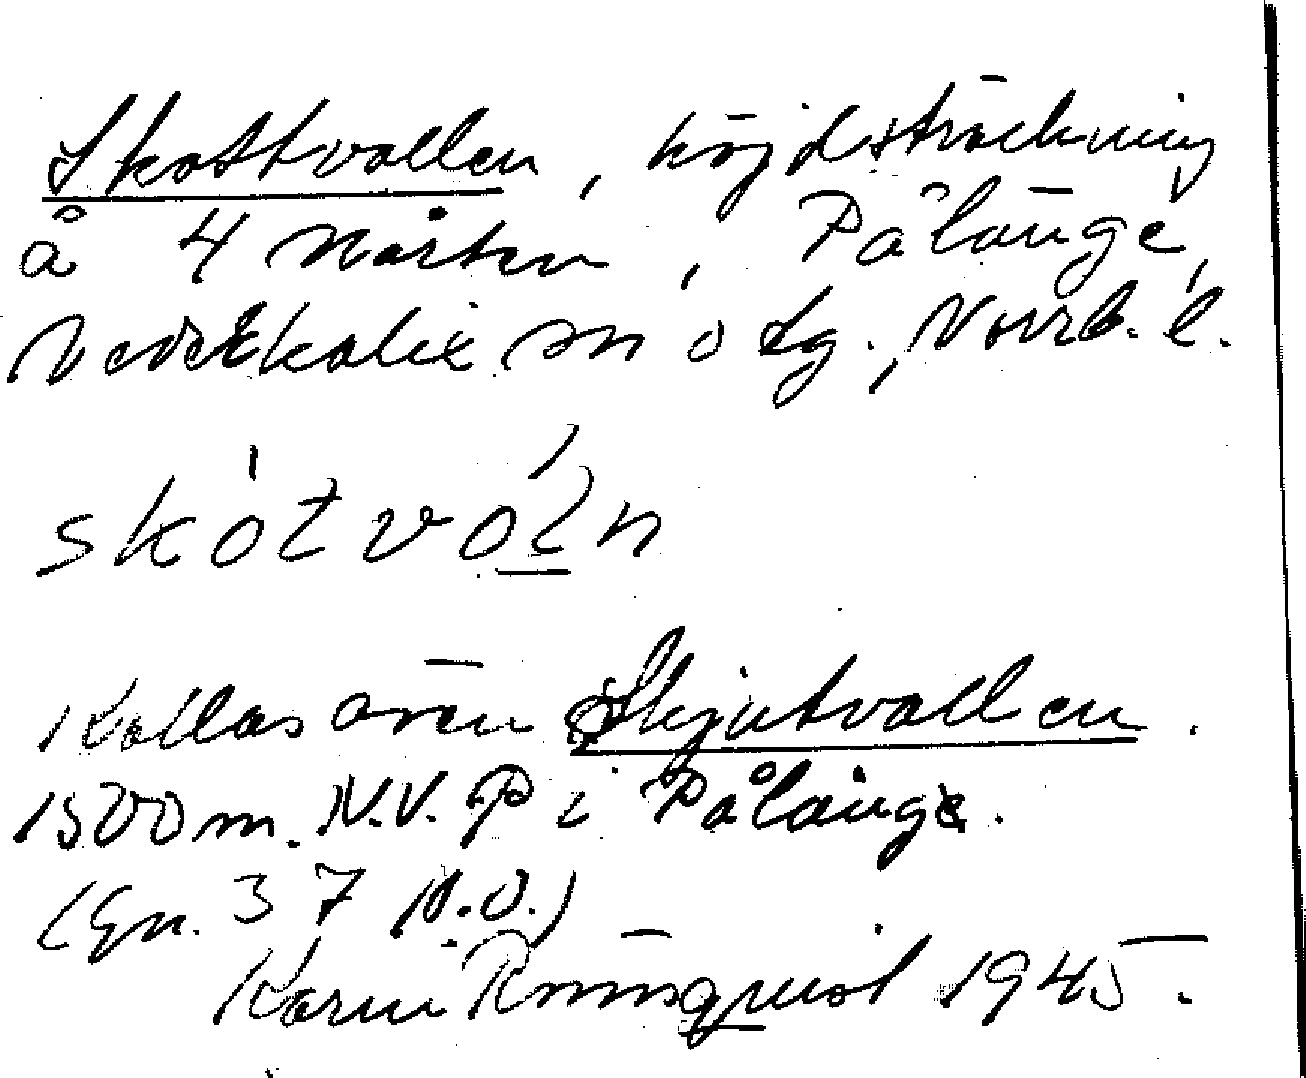 Skottvallen, höjdsträckning
å 4 Mårten, Pålänge,
Nederkalix sn o tg., Norrb. l.
skótvóln
Kallas även Skjutvallen.
1500 m. N.V. P i Pålänge.
(Gn. 37 N.O.)
Karin Rönnqvist 1945.